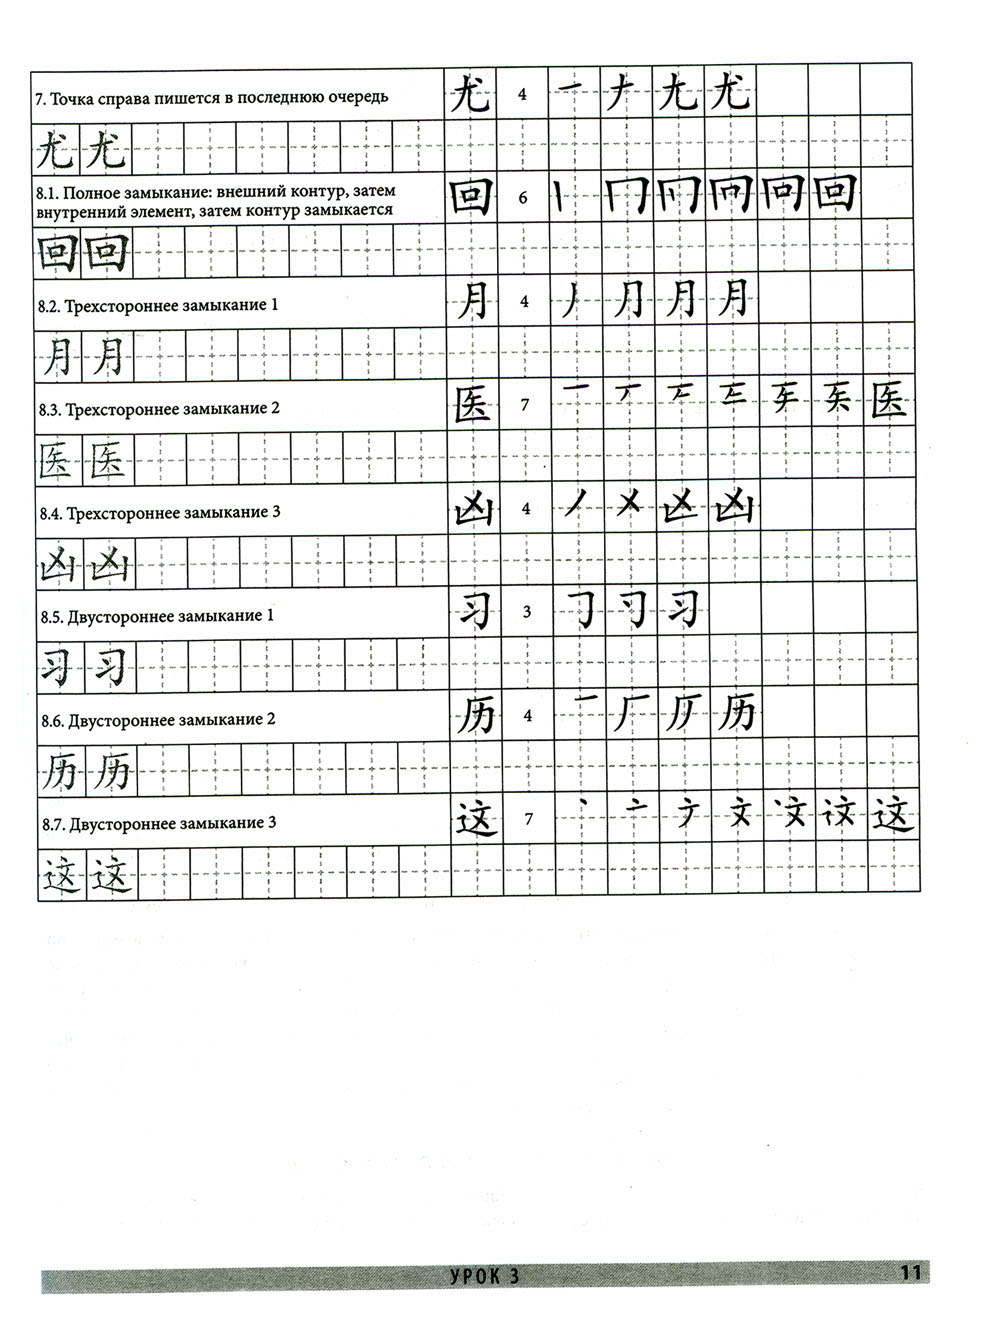 7. Точка справа пишется в последнюю очередь 尤 4 一 𠂇 尢 尤
尤 尤
8.1. Полное замыкание: внешний контур, затем
внутренний элемент, затем контур замыкается 回 6 丨 冂 回
回 回
8.2. Трехстороннее замыкание 1 月 4 丿 月
月 月
8.3. Трехстороннее замыкание 2 医 7 一 医
医 医
8.4. Трехстороннее замыкание 3 凶 4 丿 乂 凶
凶 凶
8.5. Двустороннее замыкание 1 习 3 𠃌 习
习 习
8.6. Двустороннее замыкание 2 历 4 一 厂 历
历 历
8.7. Двустороннее замыкание 3 这 7 丶 亠 文 这
这 这
УРОК 3 11